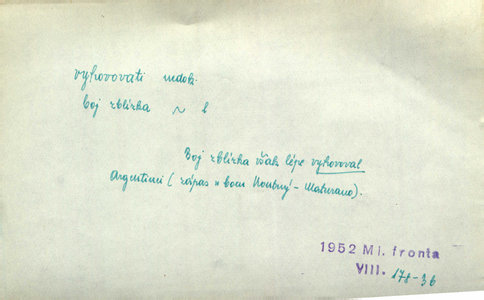 vyhovovati nedok.
boj zblízka ~ l
Boj zblízka však lépe vyhovoval
Argentinci (zápas v boxu Koutný - Maturano).
1952 Ml. fronta
VIII. 178-36